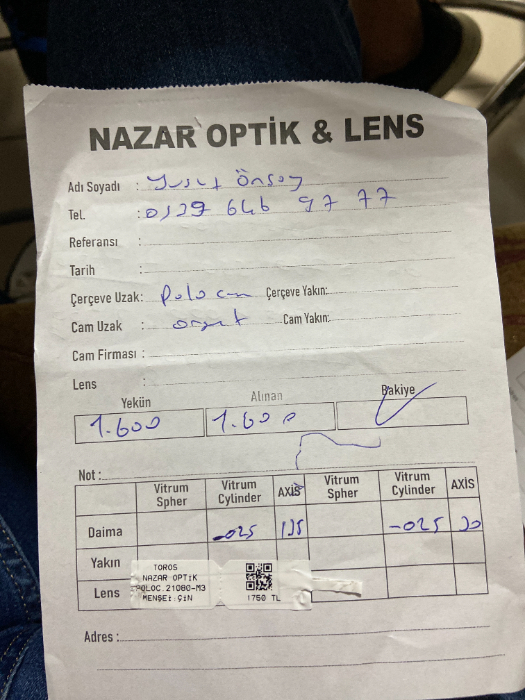 NAZAR OPTİK & LENS
Adı Soyadı : Yusuf Önsoy
Tel. : 0539 646 97 77
Referansı :
Tarih :
Çerçeve Uzak: Polo cm Çerçeve Yakın:
Cam Uzak : Cam Yakın:
Cam Firması :
Lens :
Yekün Alınan Bakiye
1.600 1.600
Not :
Vitrum Spher Vitrum Cylinder AXİS Vitrum Spher Vitrum Cylinder AXİS
Daima -025 135 -025 20
Yakın
Lens
TOROS
NAZAR OPTİK
POLOC.21080-M3
MENŞEİ:ÇİN 1750 TL
Adres :